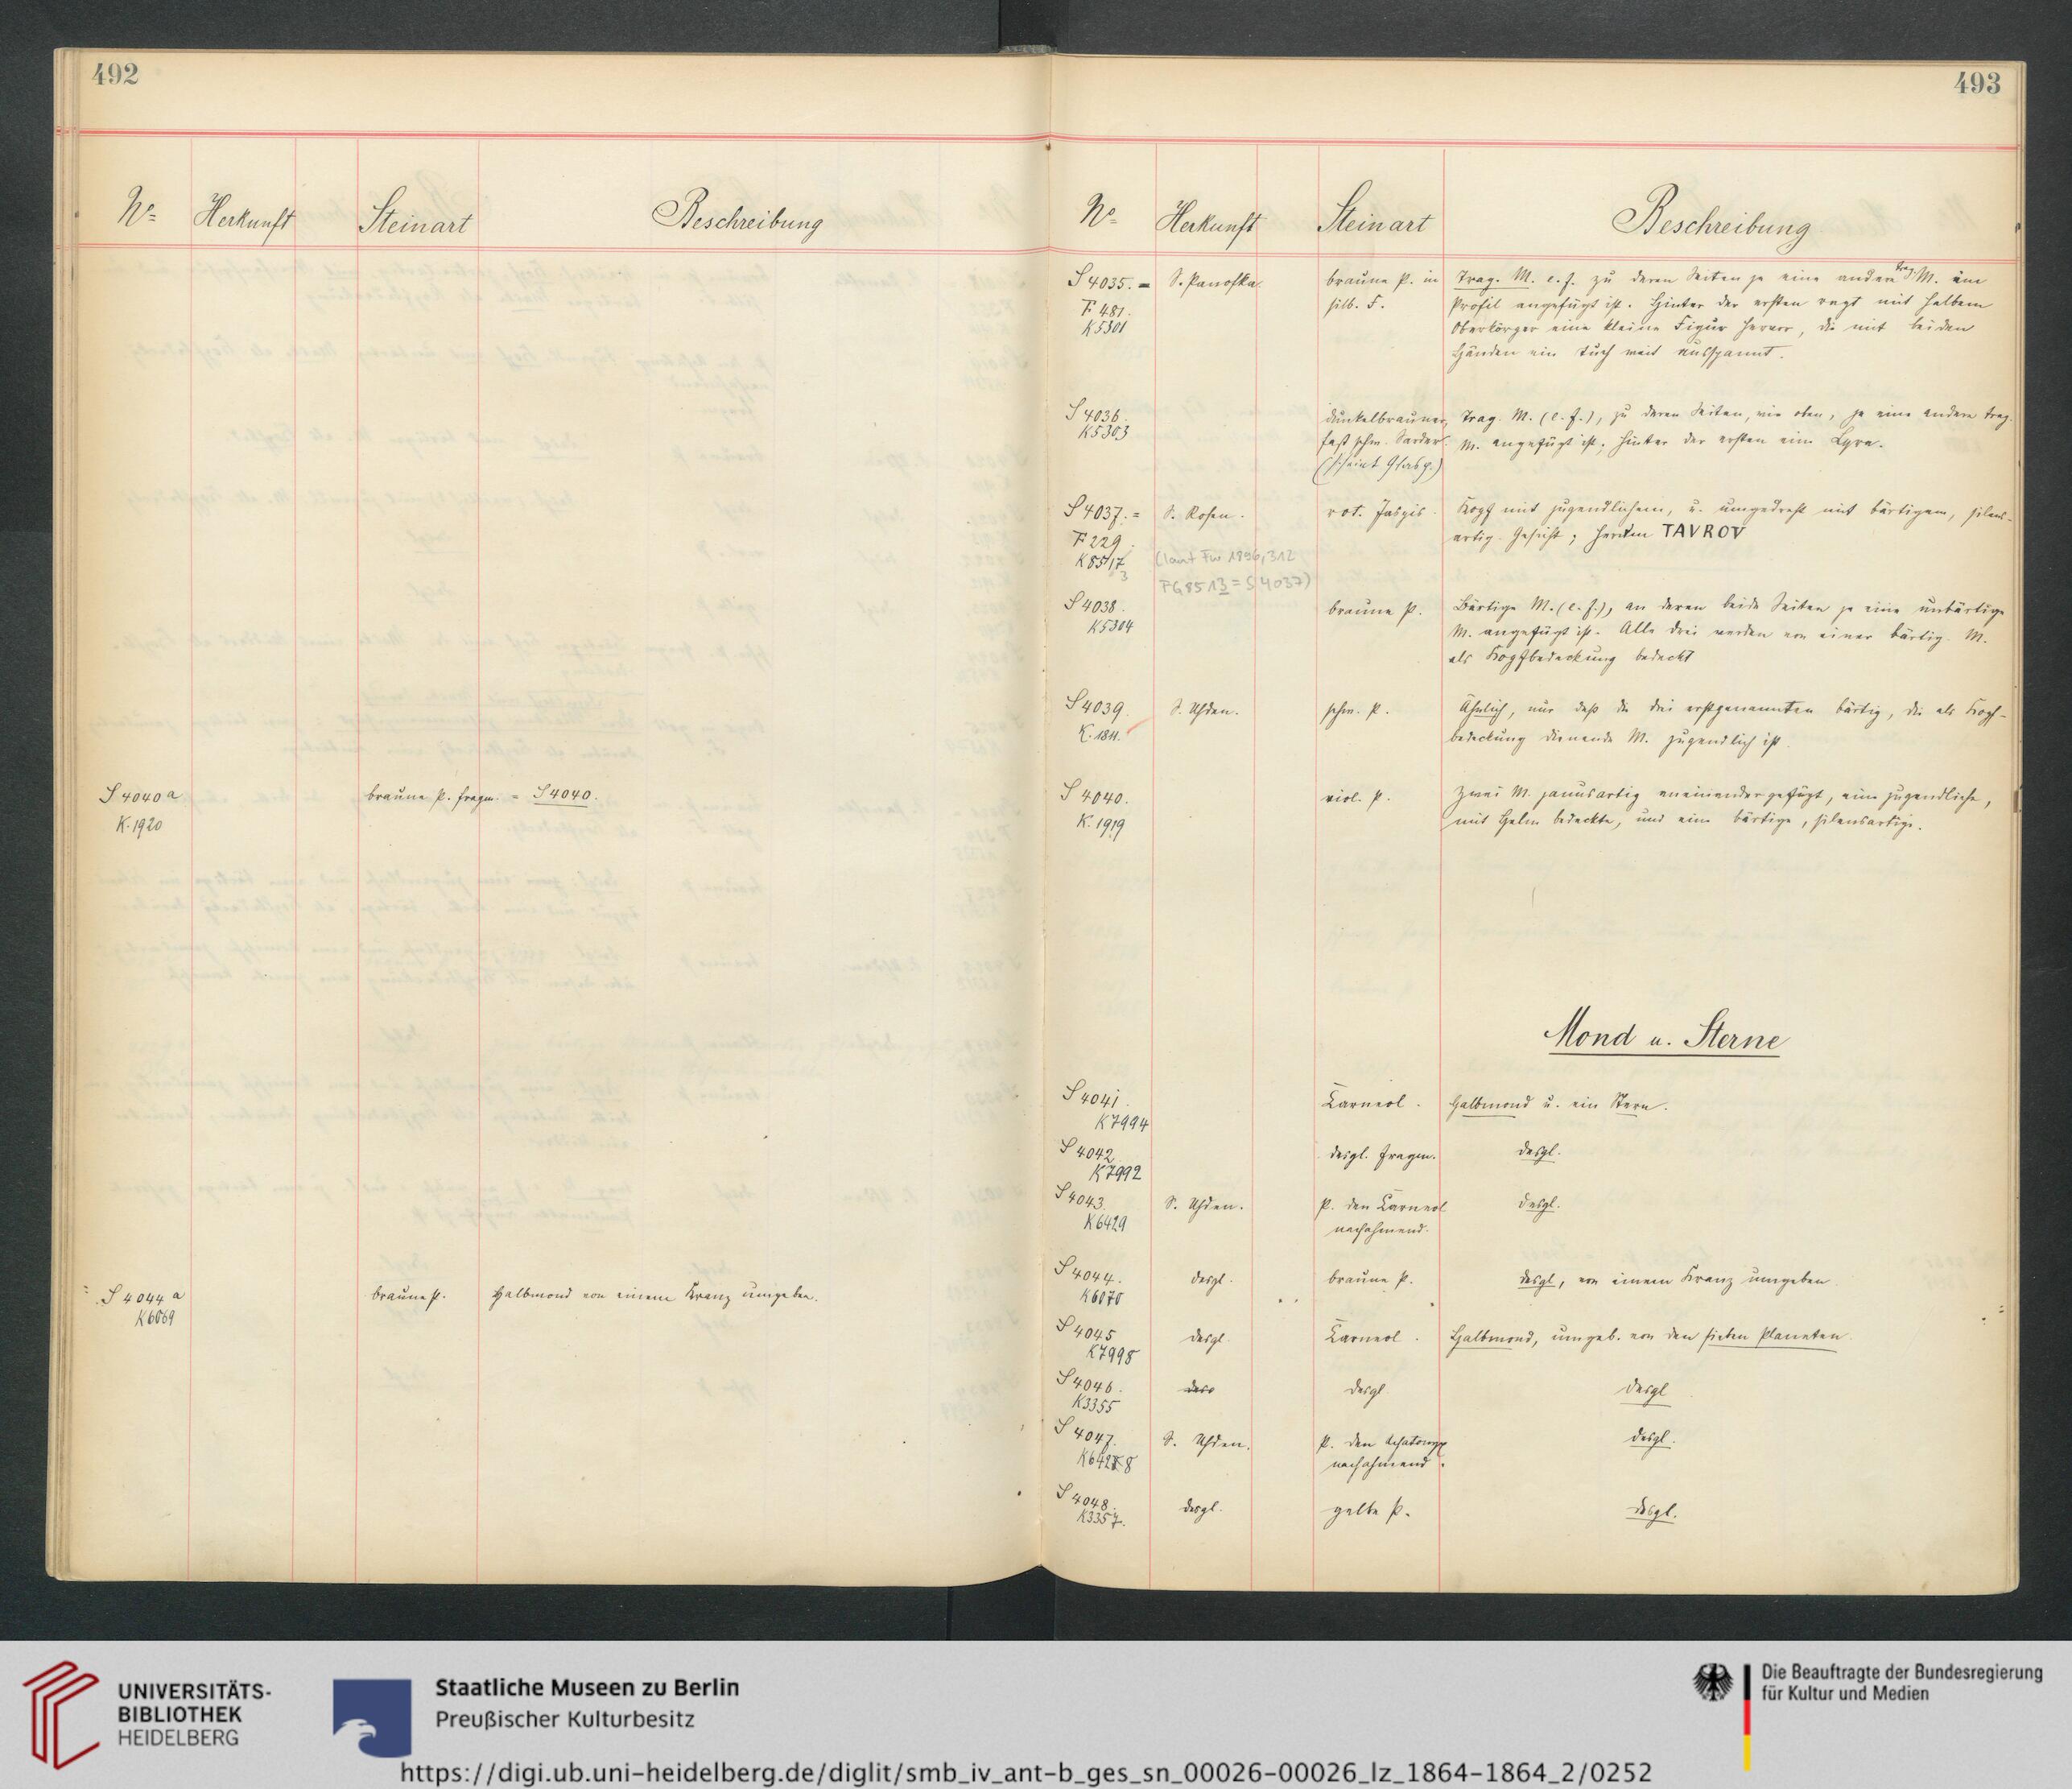 492
No
Herkunft
Steinart
Beschreibung
S 4040 a
K. 1920
braune P. fragm. = S 4040.
S 4044 a
K 6069
braune P.
Halbmond von einem Kranz umgeben.
493
No
Herkunft
Steinart
Beschreibung
S 4035. =
F 481.
K 5301
S. Panofka.
braune P. in
silb. F.
Trag. M. e. f. zu deren Seiten je eine andere trag. M. im
Profil angefügt ist. Hinter der ersten ragt mit halbem
Oberkörper eine kleine Figur hervor, die mit beiden
Händen ein Tuch weit ausspannt.
S 4036.
K 5303
dunkelbrauner,
fast schw. Sarder.
(scheint Glasp.)
Trag. M. (e. f.), zu deren Seiten, wie oben, je eine andere trag.
M. angefügt ist; hinter der ersten eine Lyra.
S 4037. =
F 229.
K 8517
3
S. Rosen.
(laut Fw 1896, 312
FG 8513 = S 4037)
rot. Jaspis.
Kopf mit jugendlichem, u. umgedreht mit bärtigem, silens-
artig. Gesicht; herum TAVROV
S 4038.
K 5304
braune P.
Bärtige M. (e. f.), an deren beide Seiten je eine unbärtige
M. angefügt ist. Alle drei werden von einer bärtig. M.
als Kopfbedeckung bedeckt
S 4039.
K. 1811.
S. Uhden.
schw. P.
Ähnlich, nur daß die drei erstgenannten bärtig, die als Kopf-
bedeckung dienende M. jugendlich ist.
S 4040.
K. 1919
viol. P.
Zwei M. janusartig aneinander gefügt, eine jugendliche,
mit Helm bedeckte, und eine bärtige, silensartige.
Mond u. Sterne
S 4041.
K 7994
Karneol.
Halbmond u. ein Stern.
S 4042
K 7992
desgl. fragm.
desgl.
S 4043.
K 6429
S. Uhden.
P. den Karneol
nachahmend.
desgl.
S 4044.
K 6070
desgl.
braune P.
desgl, von einem Kranz umgeben
S 4045
K 7998
desgl
Karneol.
Halbmond, umgeb. von den sieben Planeten.
S 4046.
K 3355
desgl
desgl
S 4047.
S. Uhden.
P. den Achatonyx
nachahmend.
desgl.
S 4048.
K 3357.
desgl.
gelbe P.
desgl.
UNIVERSITÄTS-
BIBLIOTHEK
HEIDELBERG
Staatliche Museen zu Berlin
Preußischer Kulturbesitz
Die Beauftragte der Bundesregierung
für Kultur und Medien
https://digi.ub.uni-heidelberg.de/diglit/smb_iv_ant-b_ges_sn_00026-00026_lz_1864-1864_2/0252